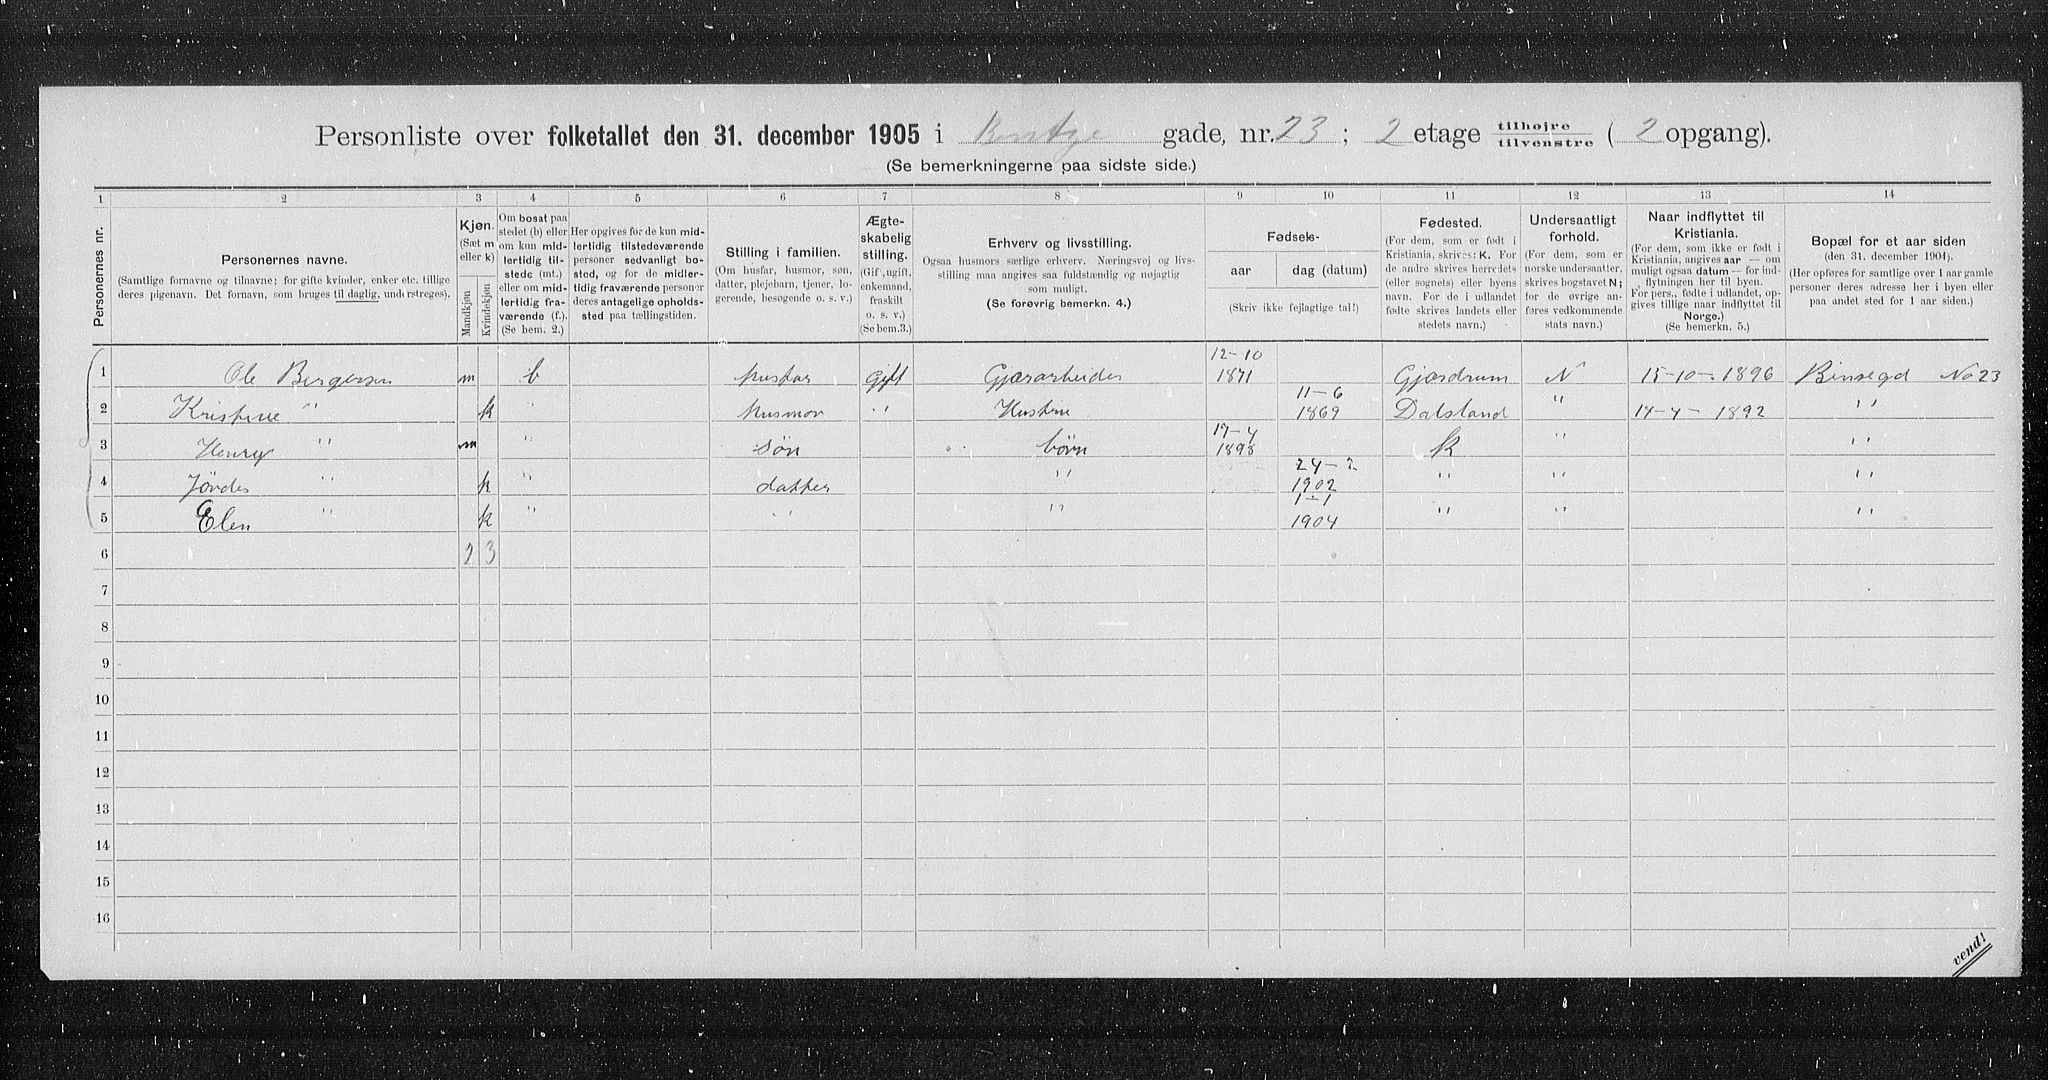 Personliste over folketallet den 31. december 1905 i Bentze gade, nr. 23; 2 etage tilhøjre/tilvenstre ( 2 opgang).
(Se bemerkningerne paa sidste side.)
1 2 3 4 5 6 7 8 9 10 11 12 13 14
Personernes nr.
Personernes navne.
(Samtlige fornavne og tilnavne; for gifte kvinder, enker etc. tillige deres pigenavn. Det fornavn, som bruges til daglig, understreges).
Kjøn.
(Sæt m eller k)
Mandkjøn
Kvindekjøn
Om bosat paa stedet (b) eller om kun midlertidig tilstede (mt.) eller om midlertidig fraværende (f.). (Se bem. 2.)
Her opgives for de kun midlertidig tilstedeværende personer sedvanligt bosted, og for de midlertidig fraværende personer deres antagelige opholdssted paa tællingstiden.
Stilling i familien.
(Om husfar, husmor, søn, datter, plejebarn, tjener, logerende, besøgende o. s. v.)
Ægteskabelig stilling.
(Gif, ugift, enkemand, fraskilt o. s. v.)
(Se bem.3.)
Erhverv og livsstilling.
Ogsaa husmors særlige erhverv. Næringsvej og livsstilling maa angives saa fuldstændig og nøjagtig som muligt.
(Se forøvrig bemerkn. 4.)
Fødsels-
aar
dag (datum)
(Skriv ikke fejlagtige tal!)
Fødested.
(For dem, som er født i Kristiania, skrives: K. For de andre skrives herredets (eller sognets) eller byens navn. For de i udlandet fødte skrives landets eller stedets navn.)
Undersaatligt forhold.
(For dem, som er norske undersaatter, skrives bogstavet N; for de øvrige anføres vedkommende stats navn.)
Naar indflyttet til Kristiania.
(For dem, som ikke er født i Kristiania, angives aar — om muligt ogsaa datum — for indflytningen her til byen. For pers., fødte i udlandet, opgives tillige naar indflyttet til Norge.)
(Se bemerkn. 5.)
Bopæl for et aar siden
(den 31. december 1904).
(Her opføres for samtlige over 1 aar gamle personer deres adresse her i byen eller paa andet sted for 1 aar siden.)
1 Ole Bergersen m b husfar Gift Gjærarbeider 12-10 1871 Gjærdrum N 15-10-1896 Binsegd No 23
2 Kristine " k " husmor " Hustru 11-6 1869 Dalsland " 14-4-1892 "
3 Henry " m " søn børn 19-4 1898 K " "
4 Jördes " k " datter " 24-2 1902 " " "
5 Elen " k " " " 1-1 1904 " " "
6 2 3
7
8
9
10
11
12
13
14
15
16
vend!